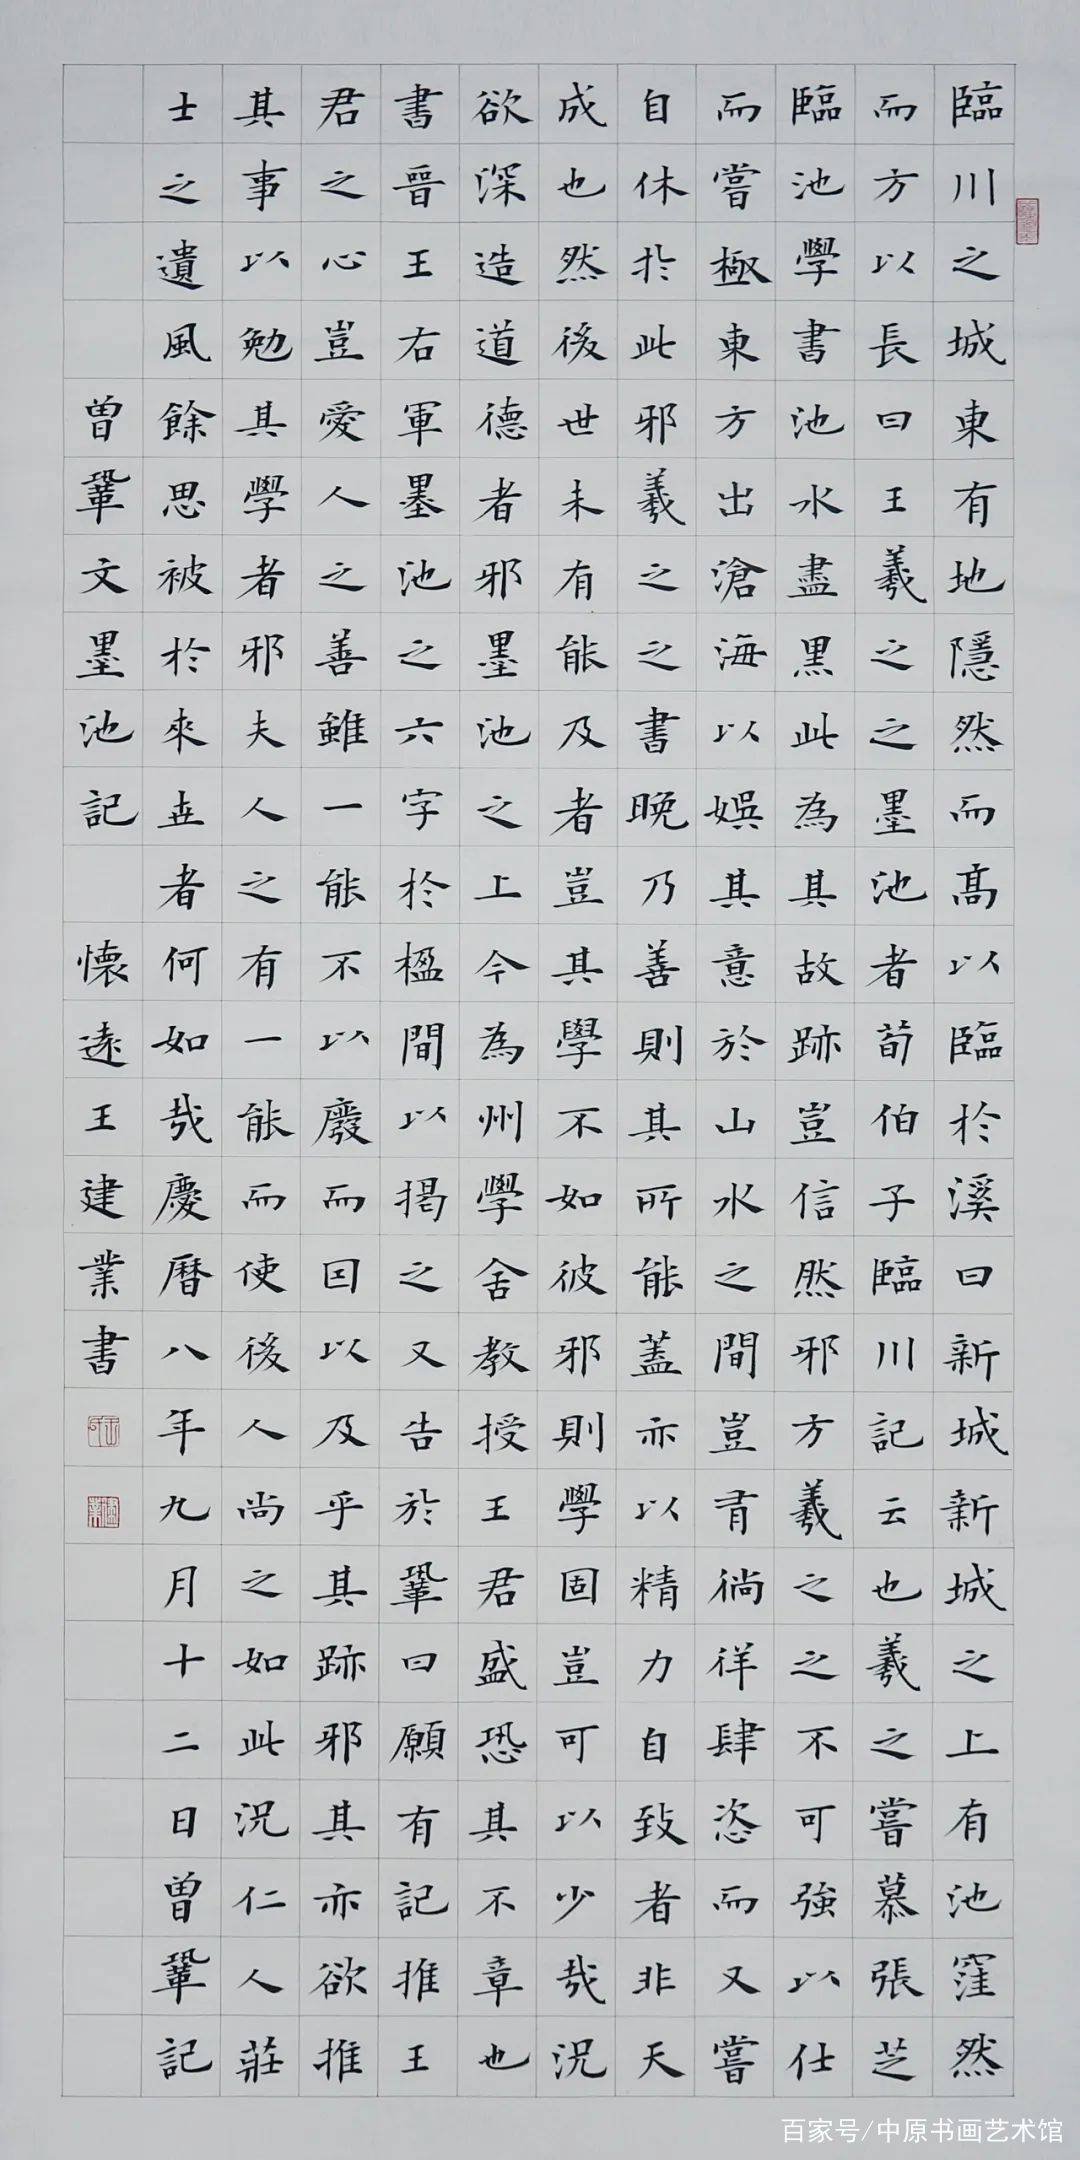 臨川之城東有地隱然而髙以臨於溪曰新城新城之上有池窪然
而方以長曰王羲之之墨池者荀伯子臨川記云也羲之嘗慕張芝
臨池學書池水盡黑此為其故跡豈信然邪方羲之之不可強以仕
而嘗極東方出滄海以娛其意於山水之間豈有徜徉肆恣而又嘗
自休於此邪羲之之書晚乃善則其所能蓋亦以精力自致者非天
成也然後世未有能及者豈其學不如彼邪則學固豈可以少哉況
欲深造道德者邪墨池之上今為州學舍教授王君盛恐其不章也
書晉王右軍墨池之六字於楹間以揭之又告於鞏曰願有記推王
君之心豈愛人之善雖一能不以廢而囙以及乎其跡邪其亦欲推
其事以勉其學者邪夫人之有一能而使後人尚之如此況仁人莊
士之遺風餘思被於來世者何如哉慶曆八年九月十二日曾鞏記
曾鞏文墨池記 懷遠王建業書
百家号/中原书画艺术馆